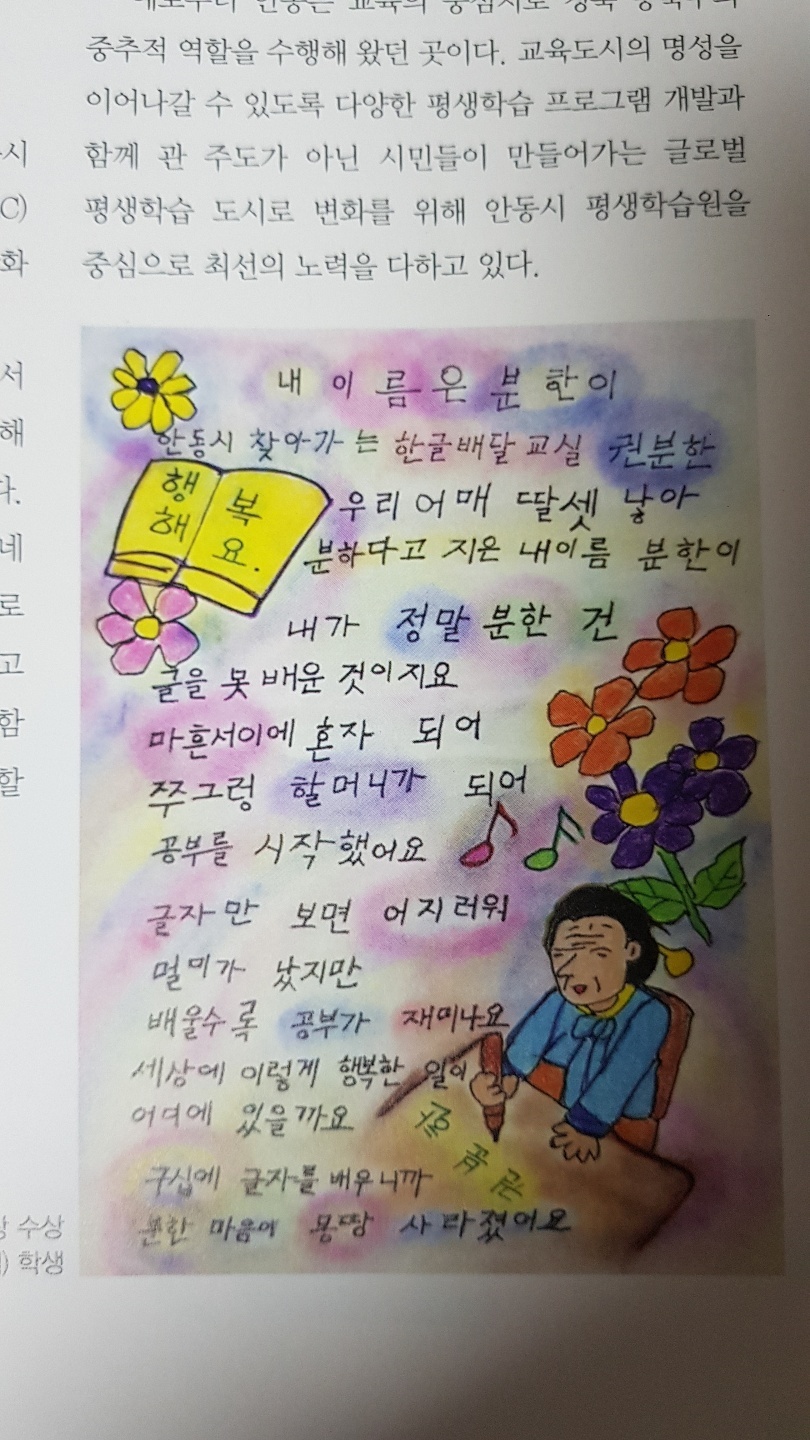 중추적 역할을 수행해 왔던 곳이다. 교육도시의 명성을
이어나갈 수 있도록 다양한 평생학습 프로그램 개발과
함께 관 주도가 아닌 시민들이 만들어가는 글로벌
평생학습 도시로 변화를 위해 안동시 평생학습원을
중심으로 최선의 노력을 다하고 있다.
시
C)
화
서
해
다.
네
로
고
함
할
수상
학생
내 이름은 분한이
안동시 찾아가는 한글배달교실 권분한
행복
해요.
우리 어매 딸셋 낳아
분하다고 지은 내이름 분한이
내가 정말 분한 건
글을 못 배운 것이지요
마흔서이에 혼자 되어
쭈그렁 할머니가 되어
공부를 시작했어요
글자만 보면 어지러워
멀미가 났지만
배울수록 공부가 재미나요
세상에 이렇게 행복한 일이
어디에 있을까요
구십에 글자를 배우니까
분한 마음이 몽땅 사라졌어요